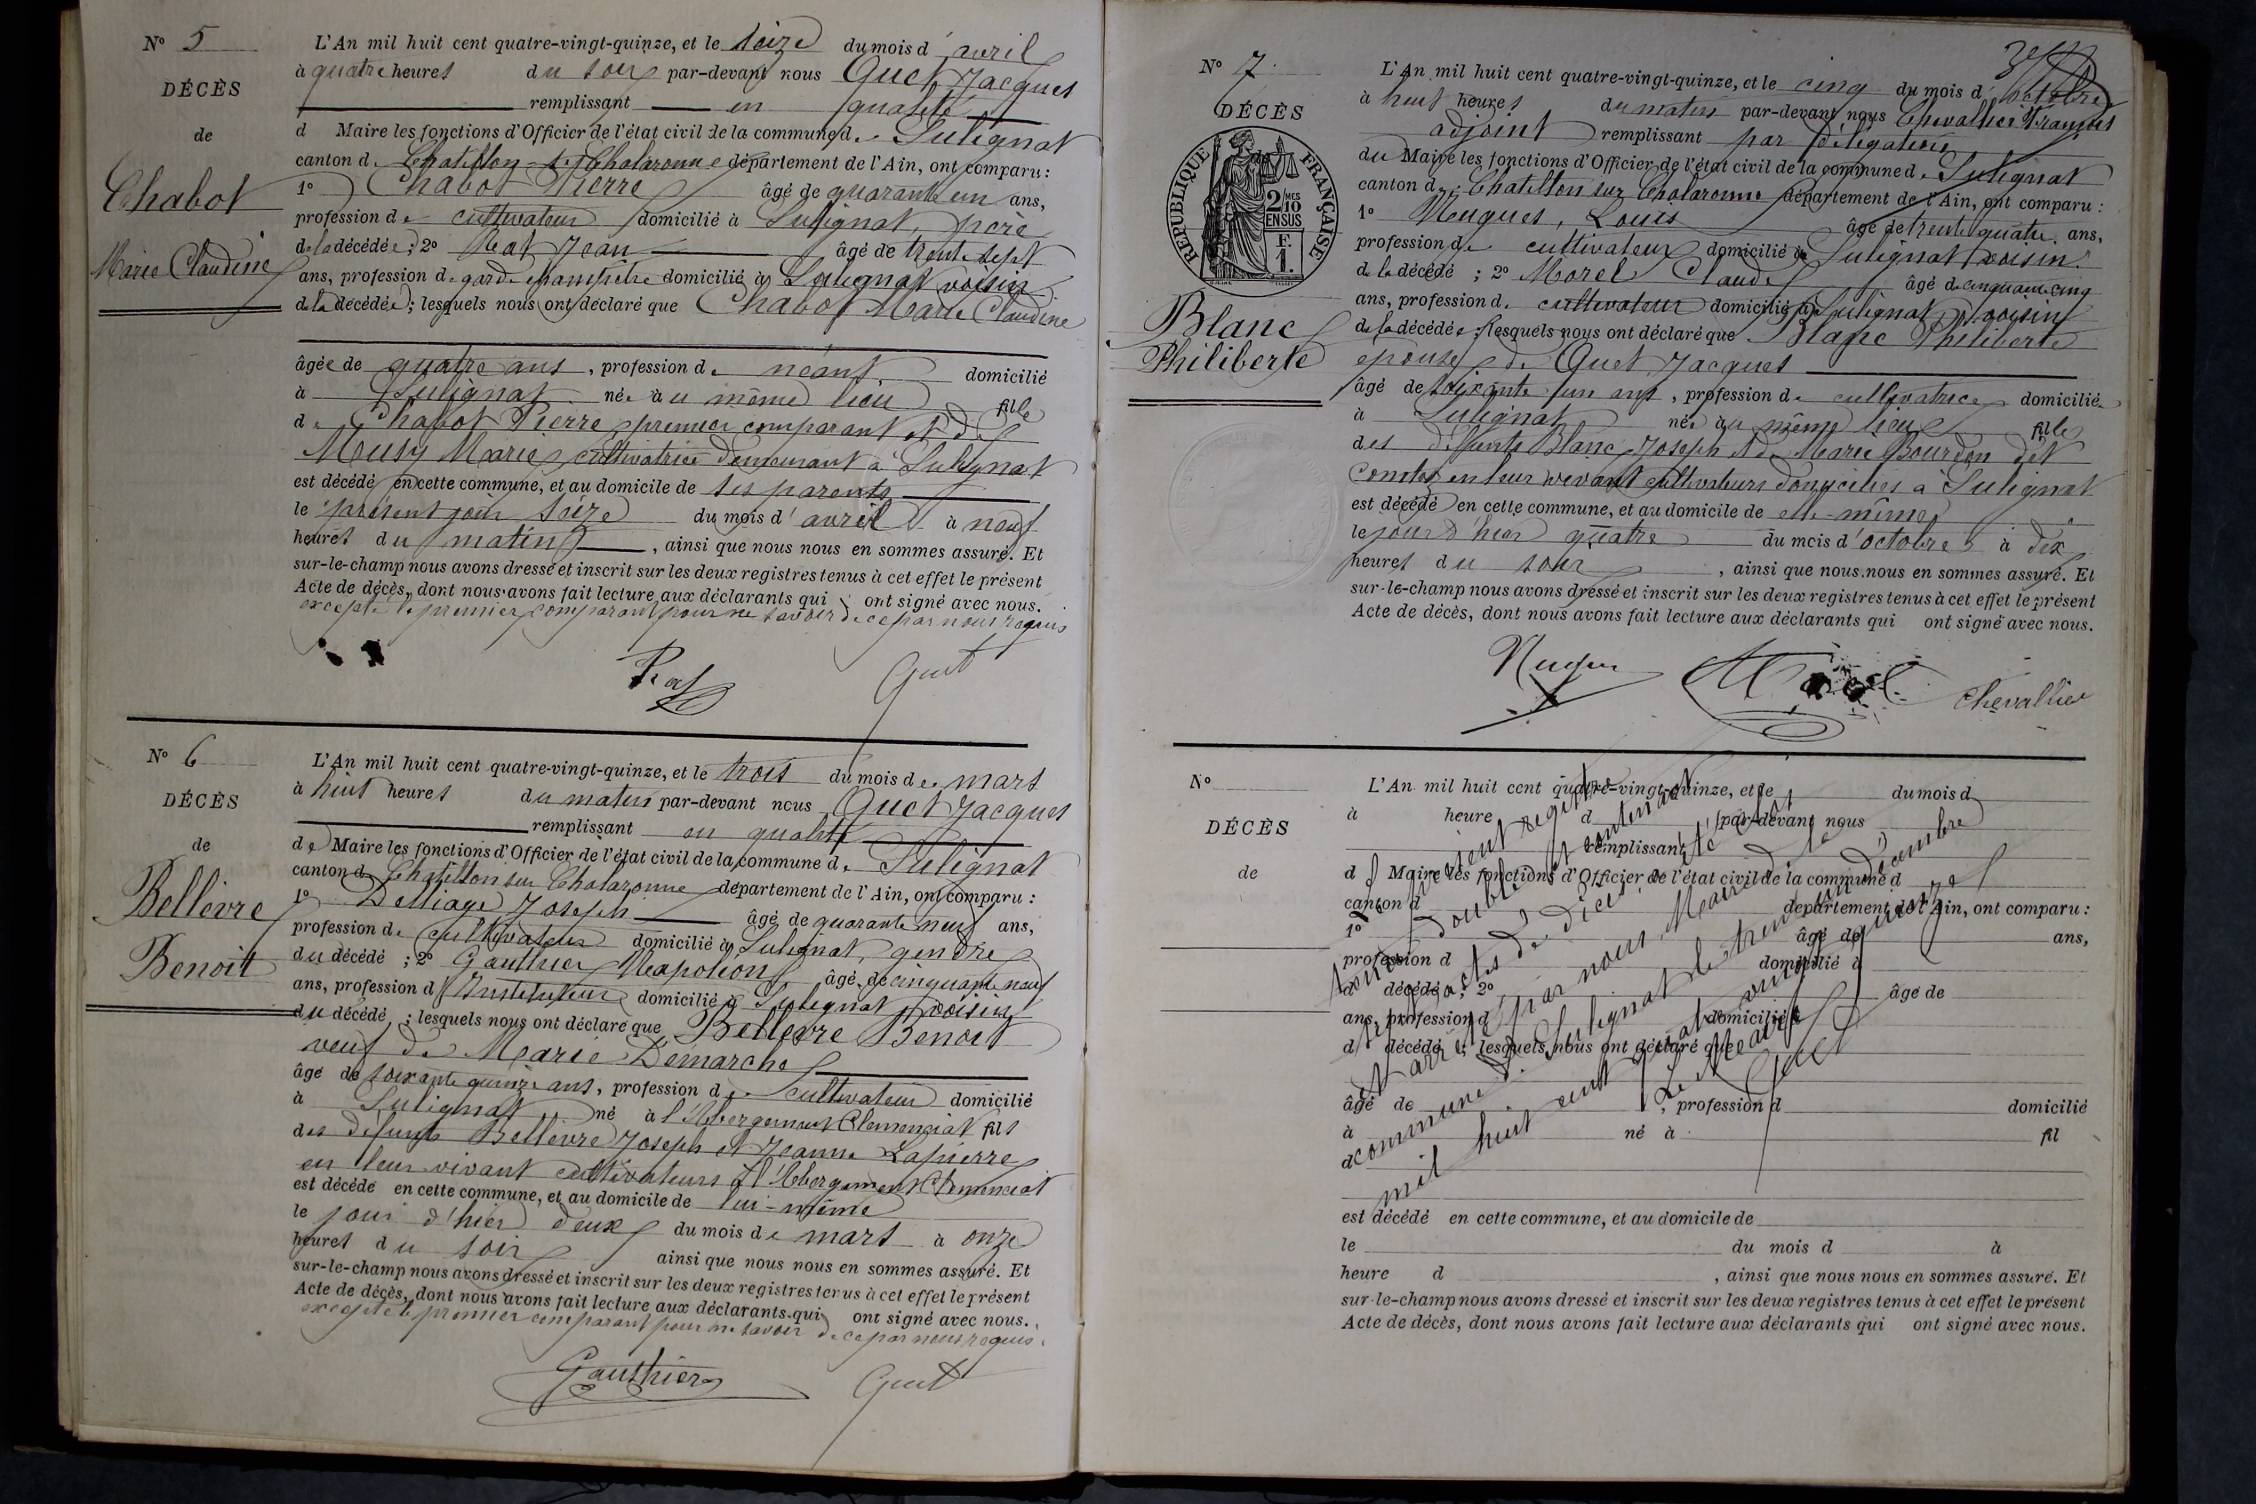 N° 5
DÉCÈS
de
Chabot
Marie Claudine
L'An mil huit cent quatre-vingt-quinze, et le seize du mois d'avril
à quatre heures du soir par-devant nous Quet Jacques
remplissant en qualité
d Maire les fonctions d'Officier de l'état civil de la commune de Sulignat
canton de Chatillon-s-Chalaronne département de l'Ain, ont comparu :
1° Chabot Pierre âgé de quarante un ans,
profession de cultivateur domicilié à Sulignat, père
de la décédée ; 2° Rat Jean âgé de trente sept
ans, profession de garde champêtre domicilié à Sulignat voisin
de la décédée ; lesquels nous ont déclaré que Chabot Marie Claudine
âgée de quatre ans, profession de néant domicilié
à Sulignat née au même lieu fille
de Chabot Pierre premier comparant et de
Meusy Marie cultivatrice demeurant à Sulignat
est décédé en cette commune, et au domicile de ses parents
le présent jour seize du mois d'avril à neuf
heures du matin, ainsi que nous nous en sommes assuré. Et
sur-le-champ nous avons dressé et inscrit sur les deux registres tenus à cet effet le présent
Acte de décès, dont nous avons fait lecture aux déclarants qui ont signé avec nous.
excepté le premier comparant pour ne savoir de ce par nous requis
Rat Quet
N° 6
DÉCÈS
de
Bellèvre
Benoit
L'An mil huit cent quatre-vingt-quinze, et le trois du mois de mars
à huit heures du matin par-devant nous Quet Jacques
remplissant en qualité
de Maire les fonctions d'Officier de l'état civil de la commune de Sulignat
canton de Chatillon sur Chalaronne département de l'Ain, ont comparu :
1° Delliage Joseph âgé de quarante neuf ans,
profession de cultivateur domicilié à Sulignat, gendre
du décédé ; 2° Gauthier Napoléon âgé de cinquante neuf
ans, profession d'Instituteur domicilié à Sulignat voisin
du décédé ; lesquels nous ont déclaré que Bellèvre Benoit
veuf de Marie Démarche
âgé de soixante quinze ans, profession de cultivateur domicilié
à Sulignat né à l'Abergement Clemenciat fils
des défunts Bellèvre Joseph et Jeanne Lapierre
en leur vivant cultivateurs à l'Abergement Clemenciat
est décédé en cette commune, et au domicile de lui-même
le jour d'hier deux du mois de mars à onze
heures du soir ainsi que nous nous en sommes assuré. Et
sur-le-champ nous avons dressé et inscrit sur les deux registres tenus à cet effet le présent
Acte de décès, dont nous avons fait lecture aux déclarants qui ont signé avec nous.
excepté le premier comparant pour ne savoir de ce par nous requis.
Gauthier Quet
N° 7
DÉCÈS
RÉPUBLIQUE FRANÇAISE
2/10 MES
EN SUS
F.
1.
Blanc
Philiberte
L'An mil huit cent quatre-vingt-quinze, et le cinq du mois d'octobre
à huit heures du matin par-devant nous Chevallier François
adjoint remplissant par délégation
du Maire les fonctions d'Officier de l'état civil de la commune de Sulignat
canton de Chatillon sur Chalaronne département de l'Ain, ont comparu :
1° Nugues, Louis âgé de trente quatre ans,
profession de cultivateur domicilié à Sulignat voisin
de la décédé ; 2° Morel Claude âgé de cinquante cinq
ans, profession de cultivateur domicilié à Sulignat voisin
de la décédée ; lesquels nous ont déclaré que Blanc Philiberte
épouse de Quet Jacques
âgé de soixante un ans, profession de cultivatrice domiciliée
à Sulignat née au même lieu fille
des défunts Blanc Joseph et de Marie Bourdon dit
Comte en leur vivant cultivateurs domiciliés à Sulignat
est décédé en cette commune, et au domicile de elle-même
le jour d'hier quatre du mois d'octobre à dix
heures du soir, ainsi que nous nous en sommes assuré. Et
sur-le-champ nous avons dressé et inscrit sur les deux registres tenus à cet effet le présent
Acte de décès, dont nous avons fait lecture aux déclarants qui ont signé avec nous.
Morel Chevallier
N°
DÉCÈS
de
L'An mil huit cent quatre-vingt-quinze, et le du mois d
à heure d par-devant nous
remplissant
d Maire les fonctions d'Officier de l'état civil de la commune d
canton d département de l'Ain, ont comparu :
1° âgé de ans,
profession d domicilié à
d décédé ; 2° âgé de
ans, profession d domicilié à
d décédé ; lesquels nous ont déclaré que
âgé de , profession d domicilié
à né à fil
d
est décédé en cette commune, et au domicile de
le du mois d à
heure d , ainsi que nous nous en sommes assuré. Et
sur-le-champ nous avons dressé et inscrit sur les deux registres tenus à cet effet le présent
Acte de décès, dont nous avons fait lecture aux déclarants qui ont signé avec nous.
Le présent registre
tenu double et contenant
sept actes de décès a été clos
et arrêté par nous, Maire de la
commune de Sulignat le trente un décembre
mil huit cent quatre vingt quinze
Le Maire
Quet